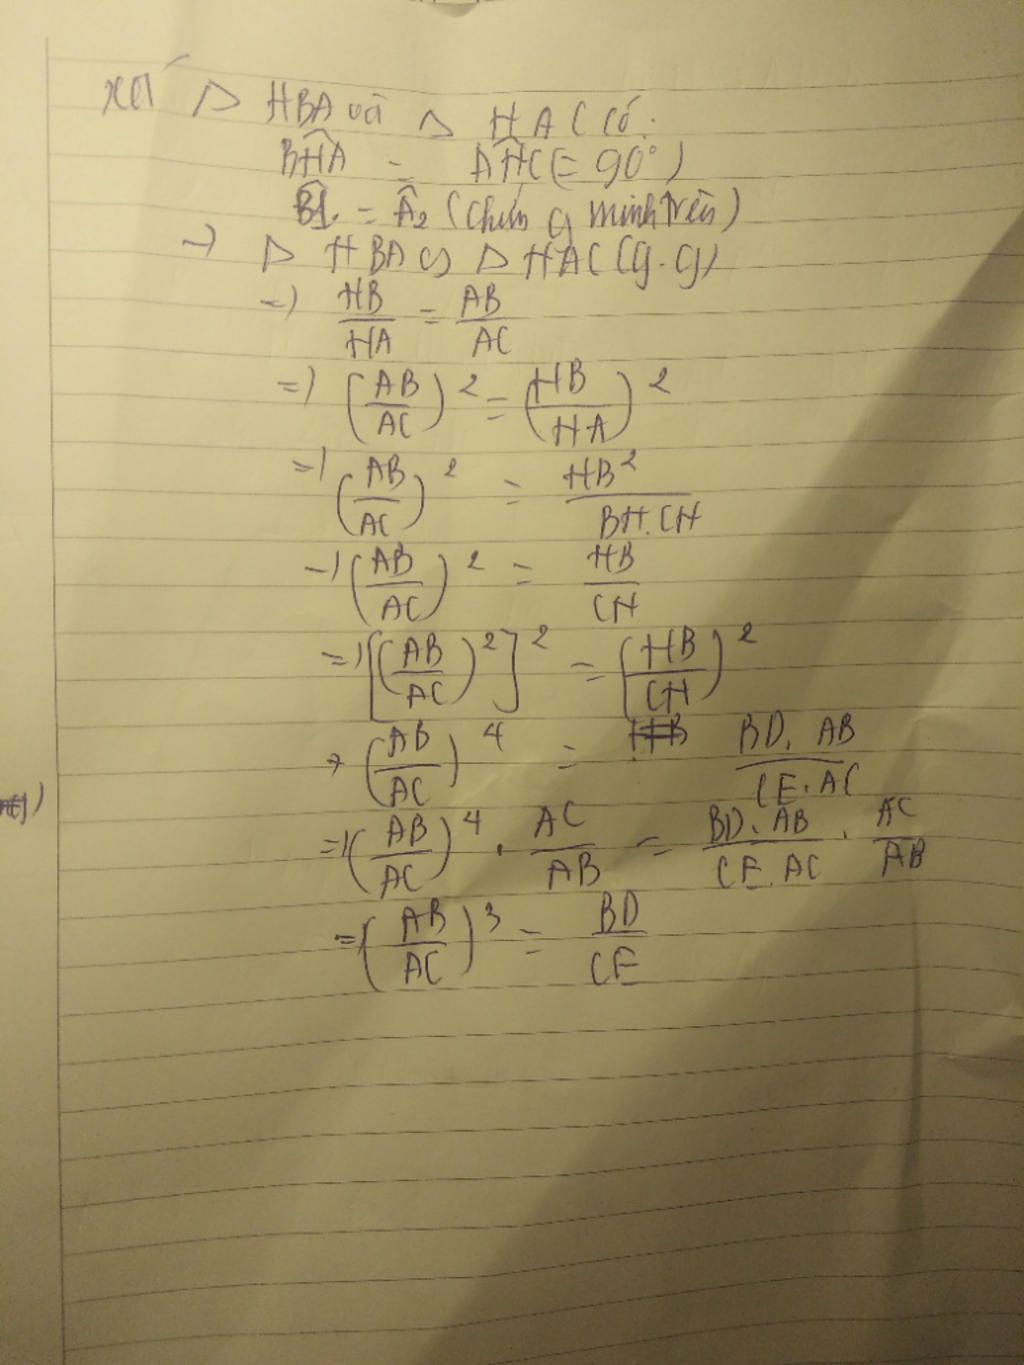 xét △ HBA và △ HAC có:
BĤA = AĤC (= 90°)
B̂1 = Â2 (chứng minh trên)
→ △ HBA ∽ △ HAC (g.g)
=) HB/HA = AB/AC
=) (AB/AC)² = (HB/HA)²
=) (AB/AC)² = HB²/BH.CH
=) (AB/AC)² = HB/CH
=) [(AB/AC)²]² = (HB/CH)²
→ (AB/AC)⁴ = BD.AB/CE.AC
=) (AB/AC)⁴ . AC/AB = BD.AB/CE.AC . AC/AB
=) (AB/AC)³ = BD/CE